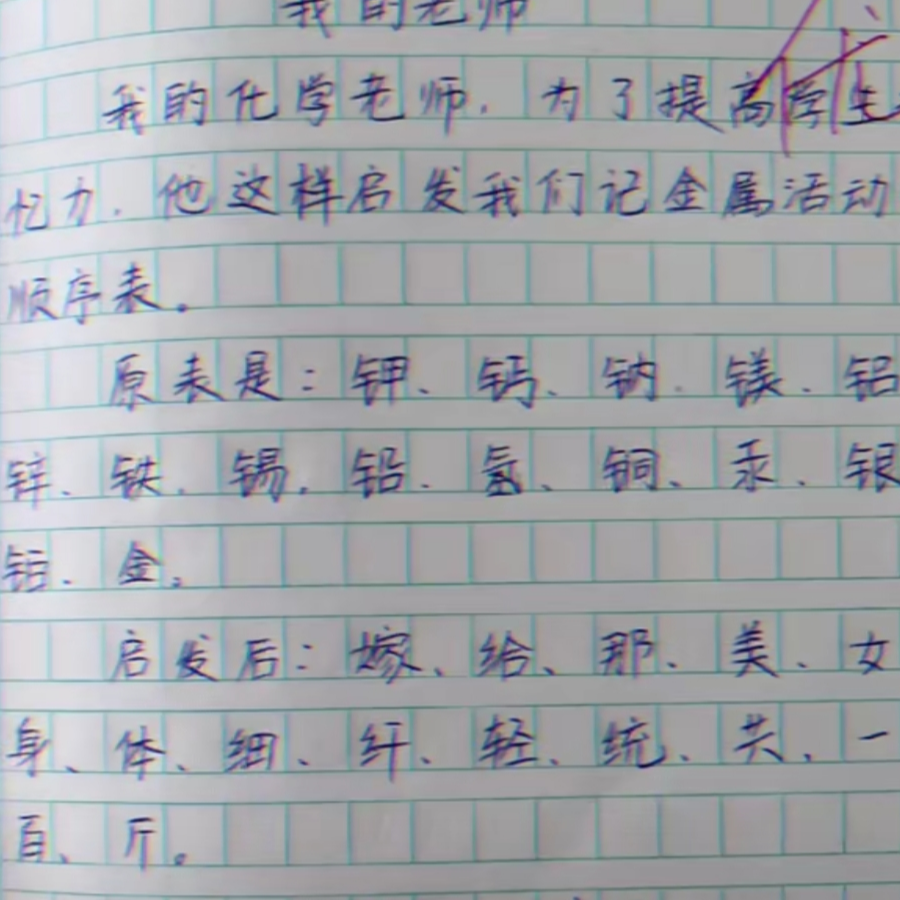 我的老师
我的化学老师，为了提高学生
忆力，他这样启发我们记金属活动
顺序表。
原表是：钾、钙、钠、镁、铝
锌、铁、锡、铅、氢、铜、汞、银
铂、金。
启发后：嫁、给、那、美、女
身、体、细、纤、轻、统、共、一
百、斤。